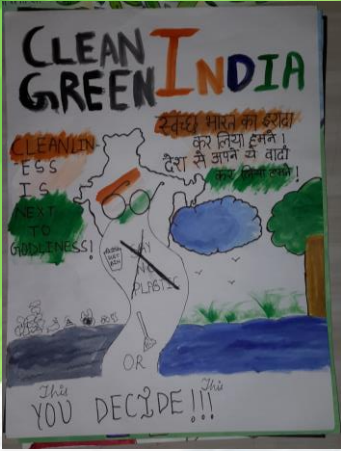 CLEAN
GREEN INDIA
स्वच्छ भारत का इरादा
कर लिया हमने।
देश से अपने ये वादा
कर लिया हमने!
CLEANLIN-
ESS
IS
NEXT
TO
GODLINESS!
SAY
NO
PLASTIC
OR
This This
YOU DECIDE!!!